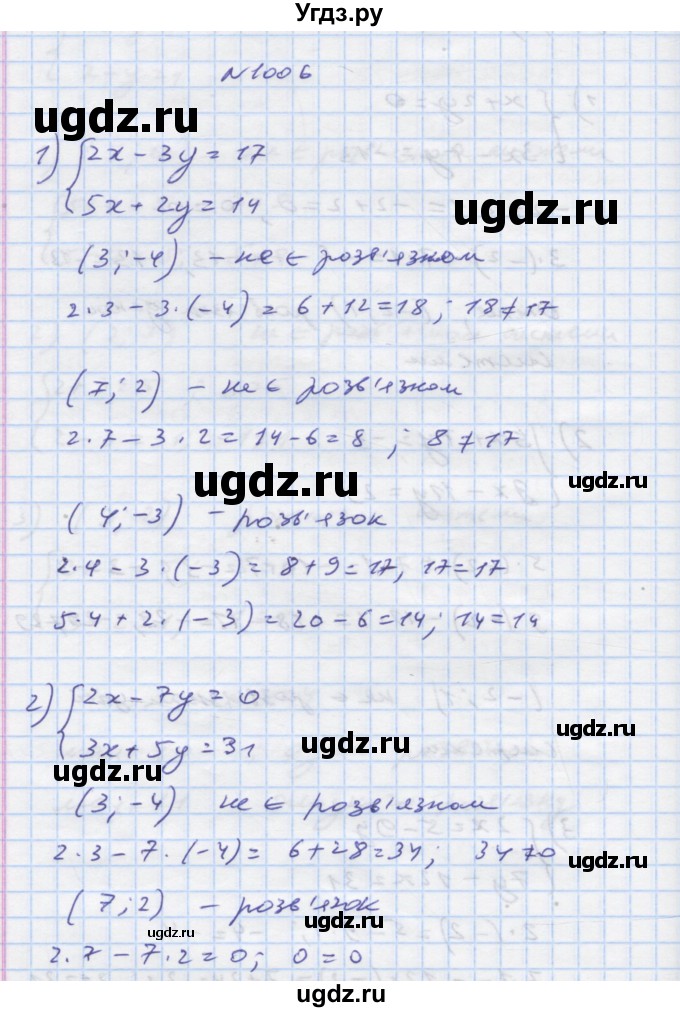 Угдз.ру
№1006
1) { 2x - 3y = 17
5x + 2y = 14
(3; -4) - не є розв'язком
2·3 - 3·(-4) = 6 + 12 = 18; 18 ≠ 17
(7; 2) - не є розв'язком
2·7 - 3·2 = 14 - 6 = 8; 8 ≠ 17
(4; -3) - розв'язок
2·4 - 3·(-3) = 8 + 9 = 17, 17 = 17
5·4 + 2·(-3) = 20 - 6 = 14; 14 = 14
2) { 2x - 7y = 0
3x + 5y = 31
(3; -4) не є розв'язком
2·3 - 7·(-4) = 6 + 28 = 34; 34 ≠ 0
(7; 2) - розв'язок
2·7 - 7·2 = 0; 0 = 0
ugdz.ru
ugdz.ru
ugdz.ru
ugdz.ru
ugdz.ru
ugdz.ru
ugdz.ru
ugdz.ru
ugdz.ru
ugdz.ru